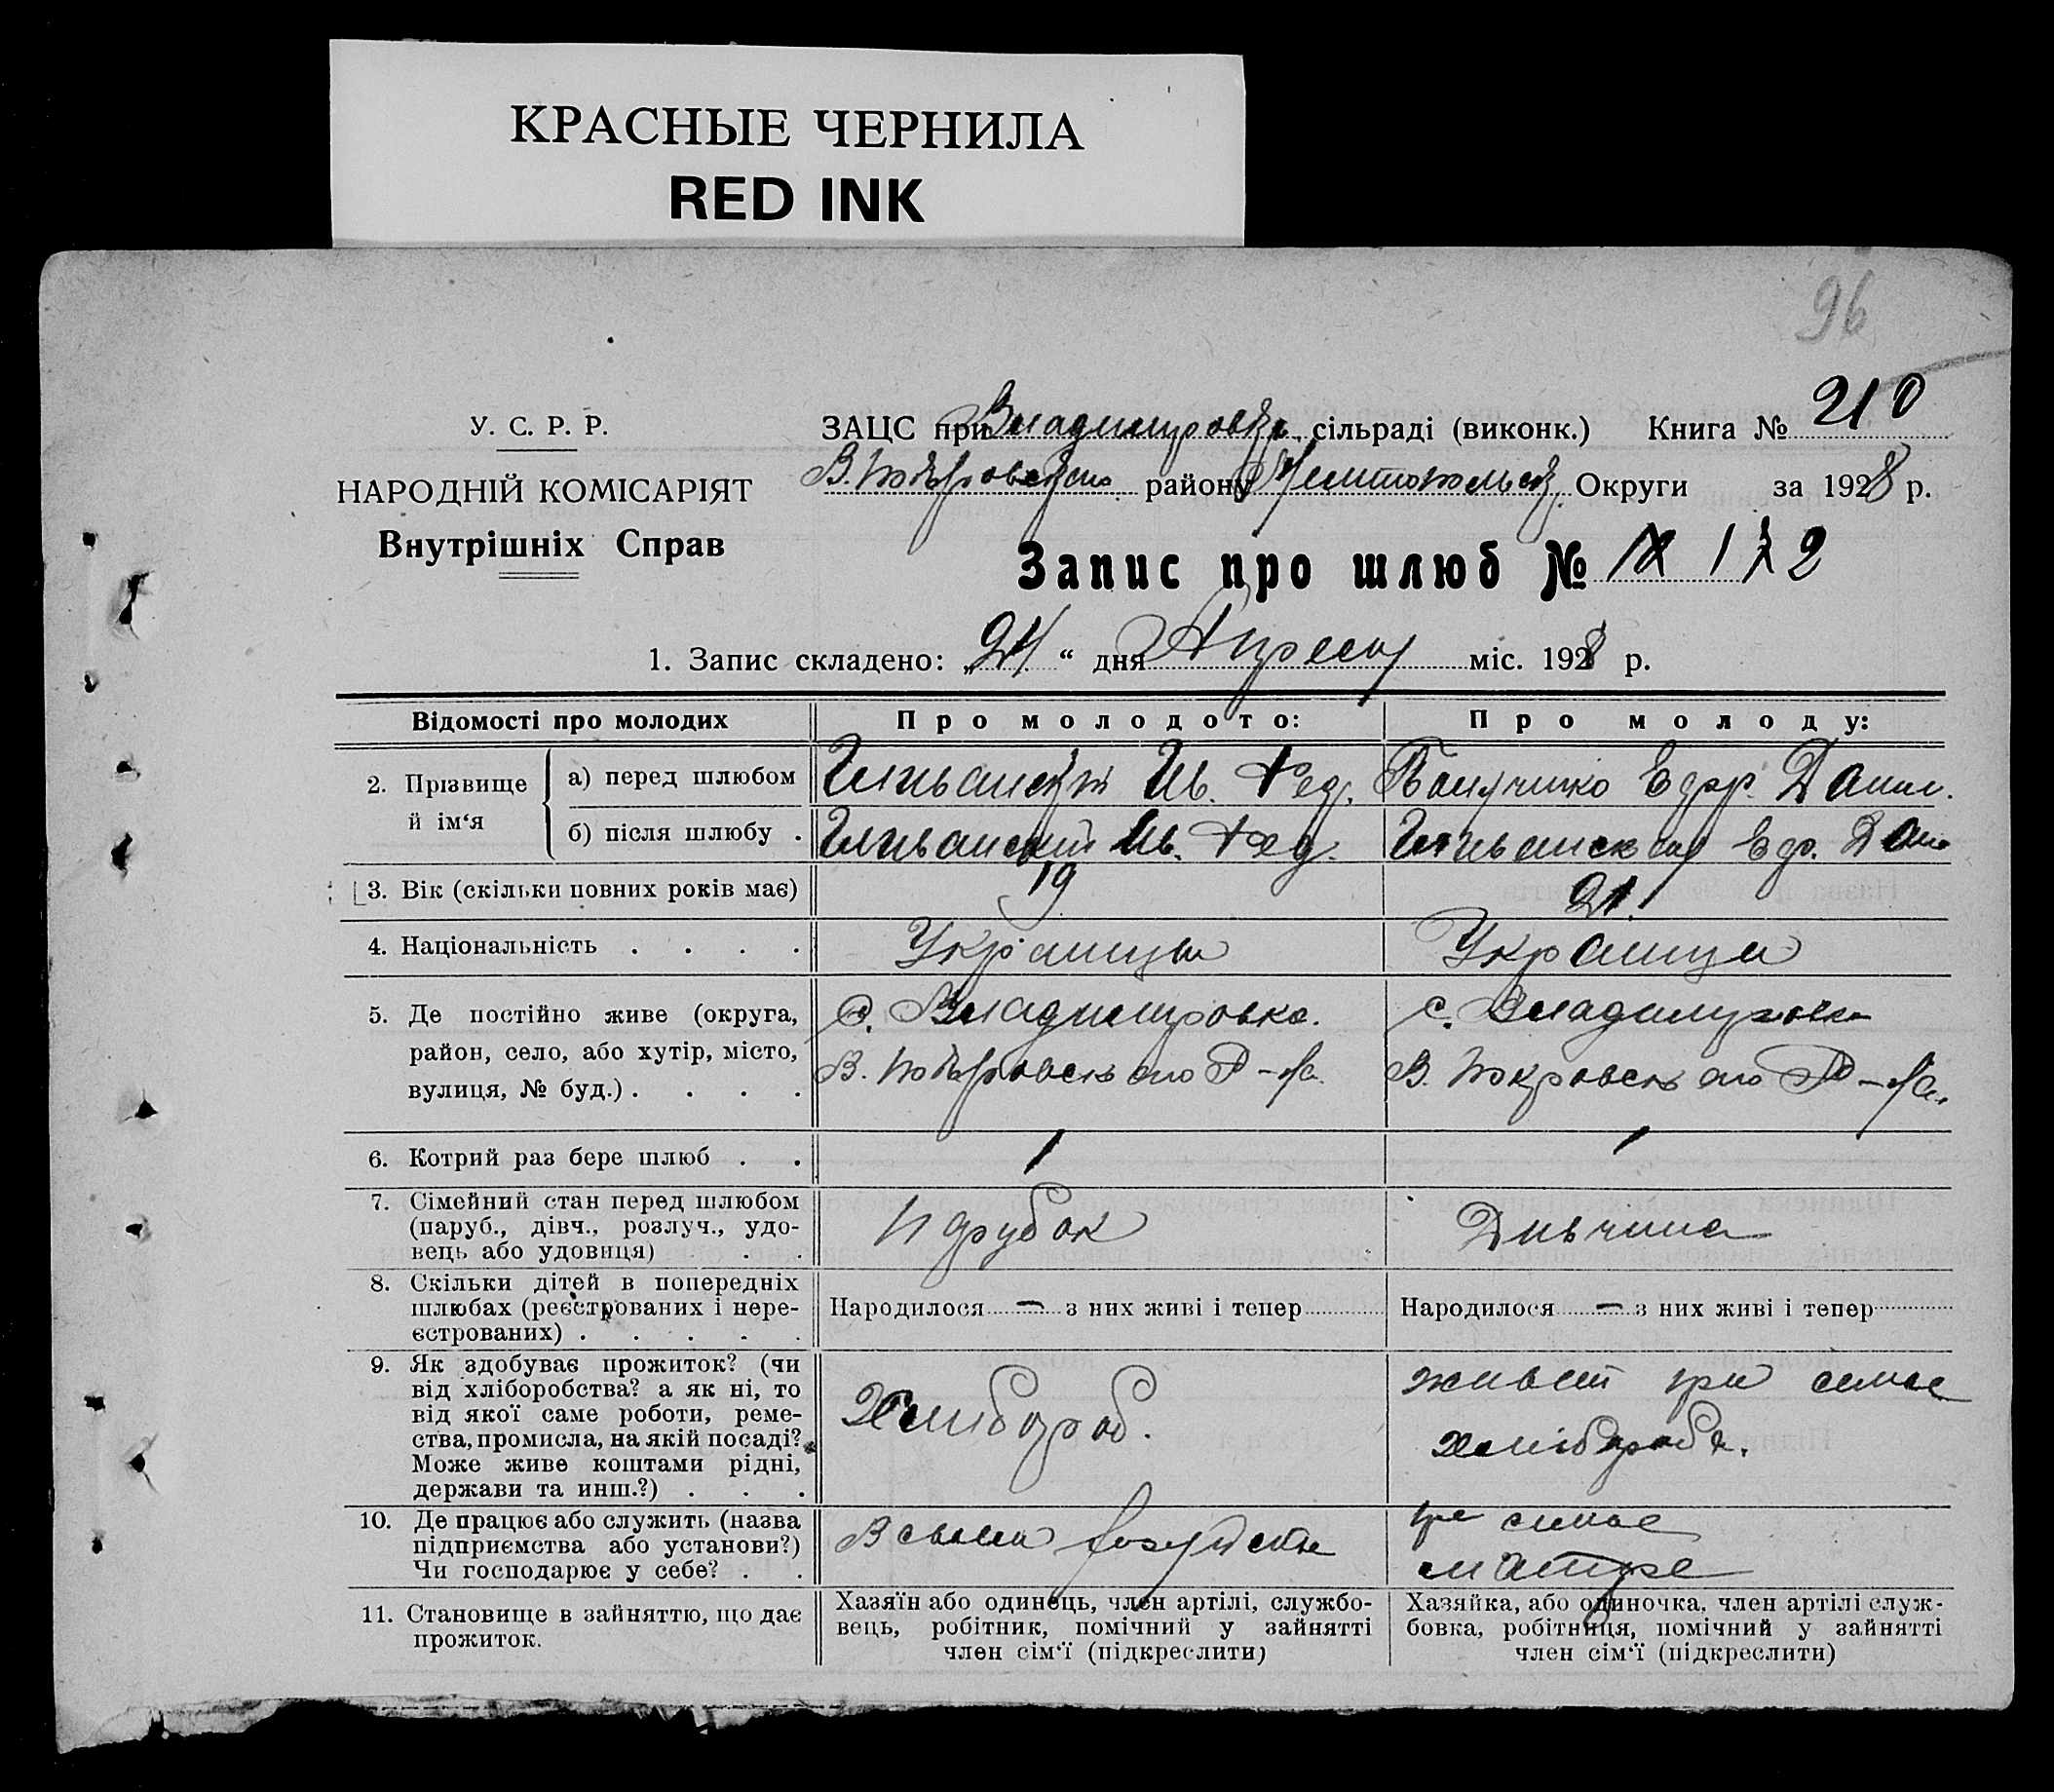 КРАСНЫЕ ЧЕРНИЛА
RED INK
96
У. С. Р. Р.
НАРОДНІЙ КОМІСАРІЯТ
Внутрішніх Справ
ЗАЦС при Владимировск. сільраді (виконк.) Книга № 210
В. Покровского району Округи за 1928 р.
Запис про шлюб № 2
1. Запис складено: „24“ дня Апреля міс. 1928 р.
Відомості про молодих
Про молодого:
Про молоду:
2. Прізвище й ім‘я
а) перед шлюбом
Ив. Фед.
Данил.
б) після шлюбу .
Ив. Фед.
3. Вік (скільки повних років має)
19
21.
4. Національність . . . .
Украинцы
Украинци
5. Де постійно живе (округа,
район, село, або хутір, місто,
вулиця, № буд.) . . . .
с. Владимировка.
В. Покровского Р-на.
с. Владимировка
В. Покровского Р-на.
6. Котрий раз бере шлюб . .
1
1
7. Сімейний стан перед шлюбом
(паруб., дівч., розлуч., удо-
вець або удовиця) . .
Парубок
Дивчина
8. Скільки дітей в попередніх
шлюбах (реєстрованих і нере-
єстрованих) . . . . .
Народилося — з них живі і тепер
Народилося — з них живі і тепер
9. Як здобуває прожиток? (чи
від хліборобства? а як ні, то
від якої саме роботи, реме-
ства, промисла, на якій посаді?
Може живе коштами рідні,
держави та инш.?) . . .
Хлибороб.
живет при семье
хлибороба.
10. Де працює або служить (назва
підприємства або установи?)
Чи господарює у себе? . .
В своем
при семье
11. Становище в зайняттю, що дає
прожиток.
Хазяїн або одинець, член артілі, службо-
вець, робітник, помічний у зайнятті
член сім‘ї (підкреслити)
Хазяйка, або одиночка, член артілі служ-
бовка, робітниця, помічний у зайнятті
член сім‘ї (підкреслити)